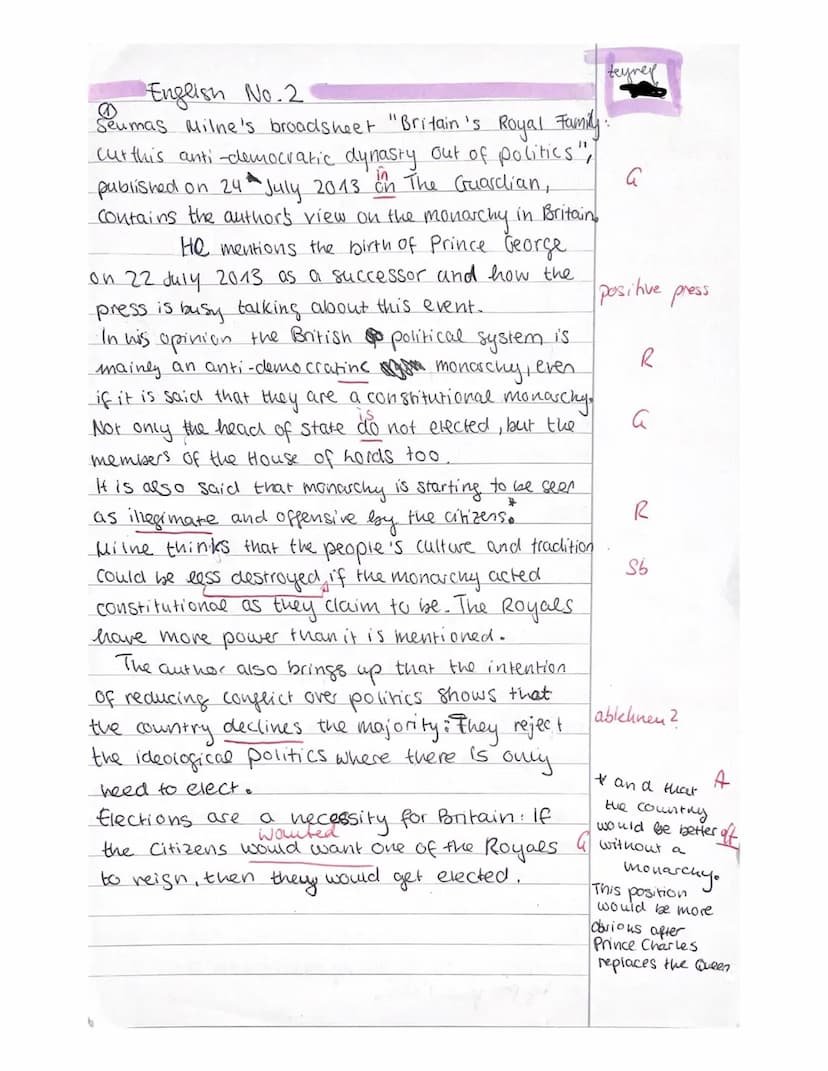 teynep
English No. 2
①
Seumas Milne's broadsheet "Britain's Royal Family:
cut this anti-democratic dynasty out of politics",
published on 24 July 2013 on The Guardian,
in
G
contains the author's view on the monarchy in Britain.
He mentions the birth of Prince George
on 22 July 2013 as a successor and how the
positive press
press is busy talking about this event.
In his opinion the British political system is
mainly an anti-democratinc monarchy, even
R
if it is said that they are a constitutional monarchy.
is
Not only the head of state do not elected, but the
G
members of the House of Lords too.
It is also said that monarchy is starting to be seen
as illegimate and offensive by the citizens.*
R
Milne thinks that the people's culture and tradition
could be less destroyed, if the monarchy acted
Sb
constitutional as they claim to be. The Royals
have more power than it is mentioned.
The author also brings up that the intention
of reducing conflict over politics shows that
the country declines the majority: They reject
ablehnen?
the ideological politics where there is only
need to elect.
Elections are a necessity for Britain: If
wanted
the citizens would want one of the Royals
G
to reign, then they would get elected.
* and that
A
the country
would be better off
without a
monarchy.
This position
would be more
obvious after
Prince Charles
replaces the Queen